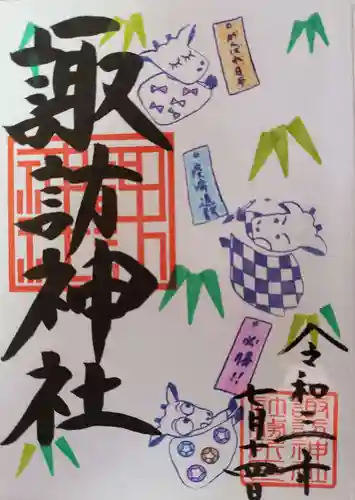 諏訪神社
がんばれ日本
疫病退散
必勝!!
令和二年
七月十四日
諏訪神社